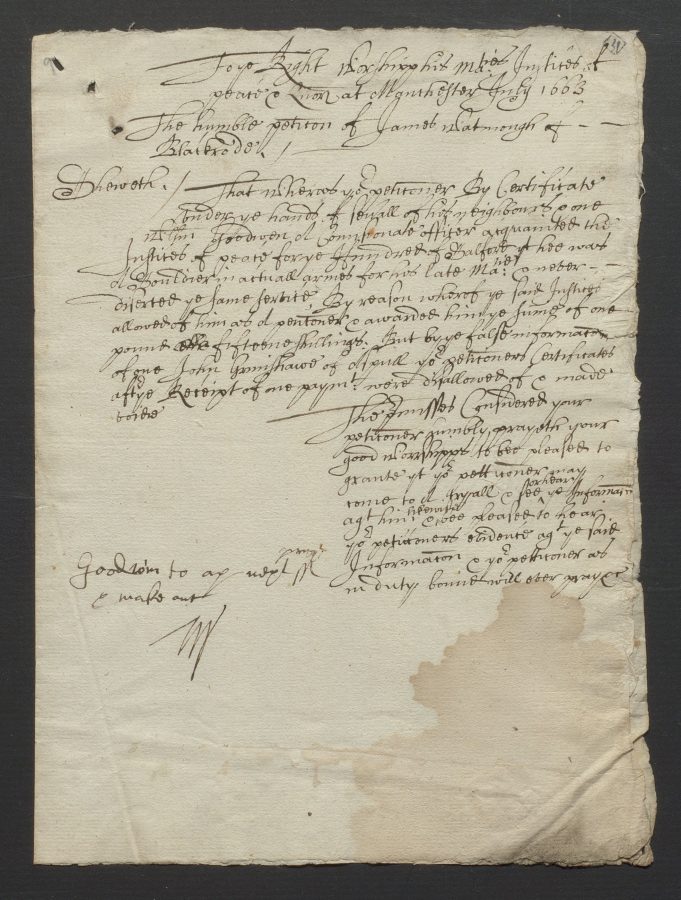 To ye Right Worshipp his Maties Justices of
peace & Quor at Manchester July 1663
The humble peticon of James Watmough of
Blackrode /
Sheweth / That Wheras yor petitioner By Certificate
under ye hands of sevrall of his neighbours & one
Willm Goodwen a Comissionate officer acquainted the
Justices of peace for ye Hundred of Salford yt hee was
a Souldier in actuall armes for his late Matie & never
diserted ye same service, By reason wherof ye said Justices
allowed of him as a petitoner & awarded him ye sume of one
pound fifteene shillings; But by ye false informacon
of one John Grimshawe of Aspull yor petitioners Certificates
aftr ye Receipt of one paymt were disallowed of & made
voide
The prmisses Considered your
petitioner humbly prayeth your
good Worshipps to bee pleased to
grante yt yor petitioner may
come to a tryall & see ye Informacon
agt him likewise & bee pleased to hear
yor petitioners evidence agt ye said
Informacon & yor petitioner as
in duty bound will ever pray &c
Goodwin to ap next
& make out